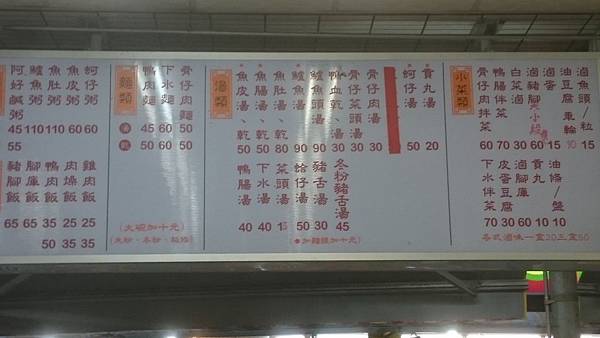 阿好鹹粥 45 55
鱸魚粥 110
魚肚粥 110
魚皮粥 60
蚵仔粥 60
豬腳飯 65
腳庫飯 65 50
鴨肉飯 35
肉燥飯 25 35
雞肉飯 25 35
麵類
鴨肉麵 45 60 50
下水麵
湯 45 60 50
乾 50 60 50
(大碗加十元)
(米粉、冬粉、粄條)
湯類
魚皮湯、乾 50
魚肚湯、乾 80
鱸魚湯 90
鱸魚頭湯 90
鴨血湯、乾 30
骨仔肉湯 30
蚵仔湯 50
貢丸湯 20
鴨腸湯 40
下水湯 40
菜頭湯
蛤仔湯 50
豬舌湯 30
冬粉豬舌湯 45
(★加麵線加十元)
小菜類
骨仔肉拌菜 60
鴨腸拌菜 70
白菜滷 30
滷豬腳 60
滷蛋 15
油豆腐車輪 10
滷魚頭/粒 15
下水拌菜 70
皮蛋豆腐 30
滷腳庫 60
貢丸 10
油 /盤 10
各式滷味一盒20三盒50